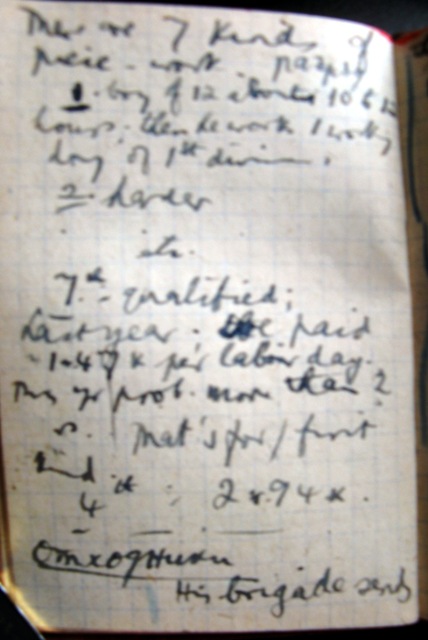 There are 7 kinds of
piece-work.
1. boy of 12 10 to 12
hours; then he works 1
day of 1st
2. harder
etc.
7th - qualified;
Last year: paid
1.47 k per labor day.
This yr prob. more than 2
r. That's for first
kind
4th : 2 r. 94 k.
Отходники
His brigade sends